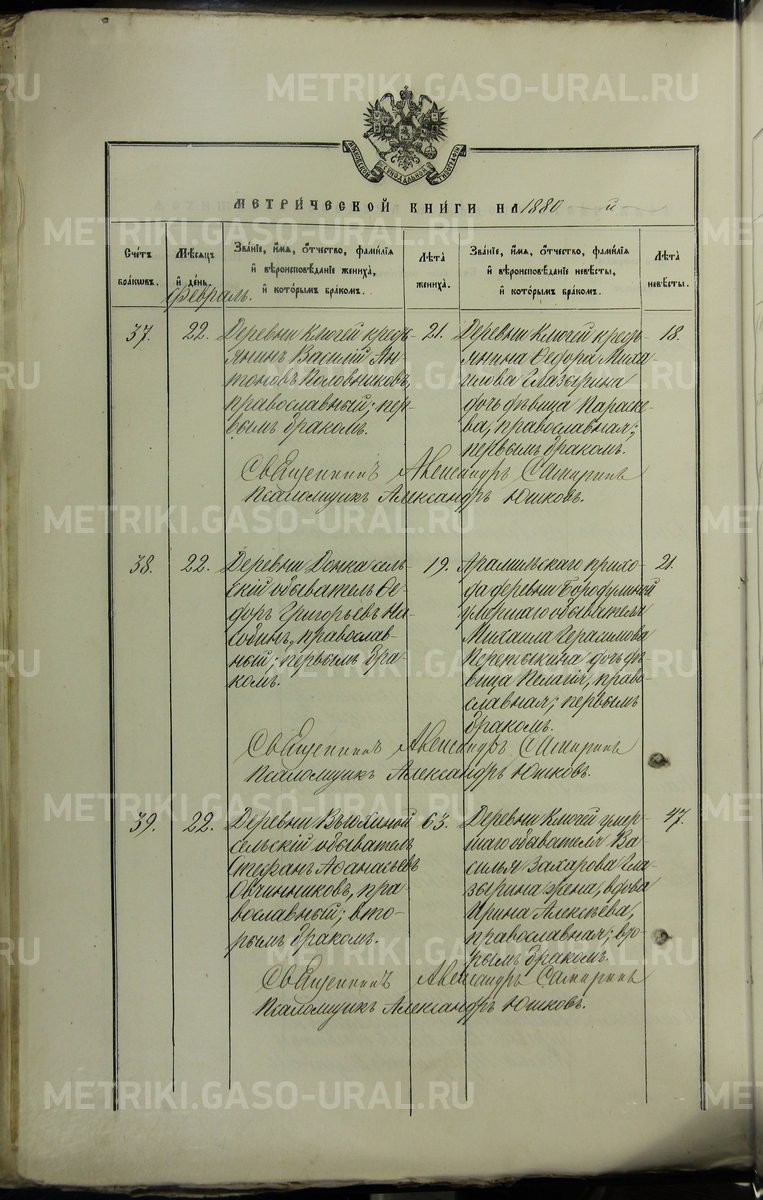 METRIKI.GASO-URAL.RU
МЕТРИ́ЧЕСКОЙ КНИ́ГИ НА 1880 й
Сче́тъ бра́ковъ.
Мѣ́сяцъ и́ де́нь.
Зва́нїе, и҆́мѧ, ѻ҆́тчество, фами́лїѧ и҆ вѣроисповѣ́данїе жениха̀, и҆ кото́рымъ бра́комъ.
Лѣ́та жениха̀.
Зва́нїе, и҆́мѧ, ѻ҆́тчество, фами́лїѧ и҆ вѣроисповѣ́данїе невѣ́сты, и҆ кото́рымъ бра́комъ.
Лѣ́та невѣ́сты.
Февраль.
37.
22.
Деревни Ключей кресть-
янинъ Василій Ан-
тоновъ Половниковъ,
православный; пер-
вымъ бракомъ.
21.
Деревни Ключей кресть-
янина Ѳедора Миха-
илова Глазырина
дочь дѣвица Параске-
ва, православная;
первымъ бракомъ.
18.
Священникъ Александръ Самаринъ
Псаломщикъ Александръ Юшковъ.
38.
22.
Деревни сель-
скій обыватель Ѳе-
доръ Григорьевъ
православ-
ный; первымъ бра-
комъ.
19.
Арамильскаго прихо-
да деревни Бородулиной
умершаго обывателя
Михаила Герасимова
дочь дѣ-
вица Пелагія, право-
славная; первымъ
бракомъ.
21.
Священникъ Александръ Самаринъ
Псаломщикъ Александръ Юшковъ.
39.
22.
Деревни Вьюхиной
сельскій обыватель
Стефанъ Аѳанасьевъ
Овчинниковъ, пра-
вославный; вто-
рымъ бракомъ.
63.
Деревни Ключей умер-
шаго обывателя Ва-
силья Захарова Гла-
зырина жена, вдова
Ирина Алексѣева,
православная; вто-
рымъ бракомъ.
47.
Священникъ Александръ Самаринъ
Псаломщикъ Александръ Юшковъ.